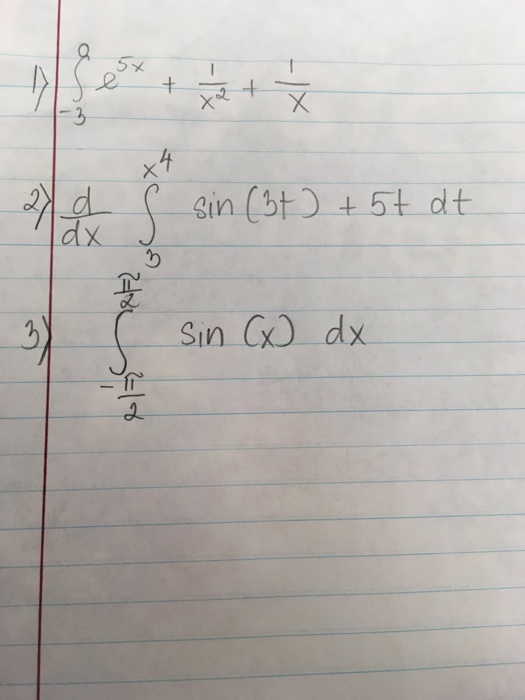 1) ∫_{-3}^{a} e^{5x} + 1/x^2 + 1/x
2) d/dx ∫_{3}^{x^4} sin (3t) + 5t dt
3) ∫_{-π/2}^{π/2} sin (x) dx